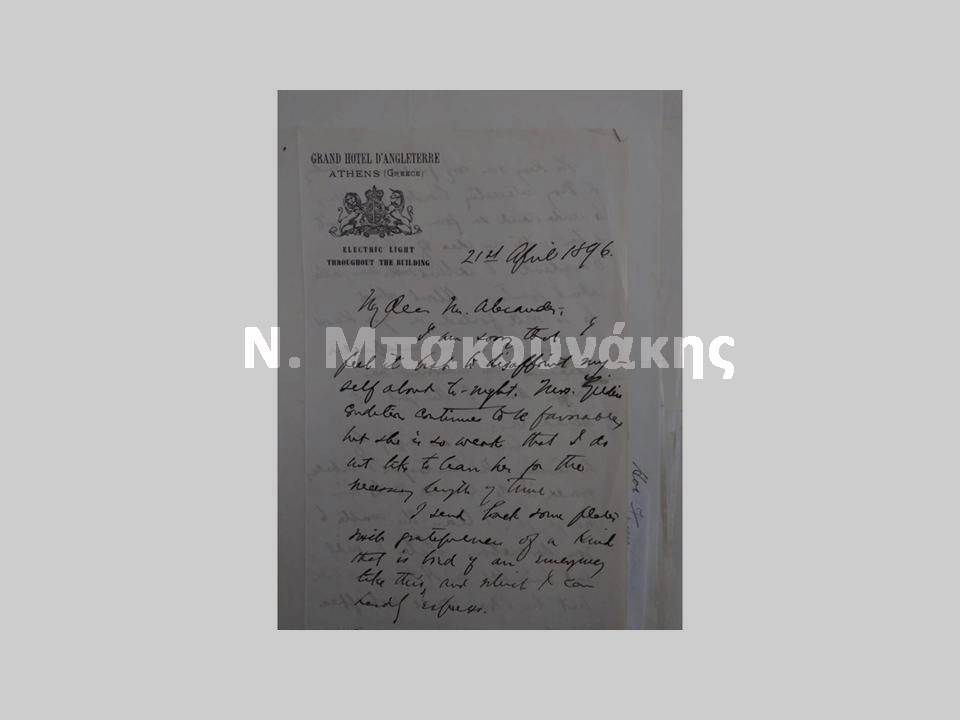 GRAND HOTEL D'ANGLETERRE
ATHENS (GREECE)
ELECTRIC LIGHT
THROUGHOUT THE BUILDING
21st April 1896.
My dear Mr. Alexander,
I am sorry that I
feel it best to disappoint my
self about to-night. Mrs.
condition continues to be favorable,
but she is so weak that I do
not like to leave her for the
necessary length of time
I send back some plates
with gratefulness of a kind
that is bred of an emergency
like this, and which I can
hardly express.
Ν. Μπακουνάκης